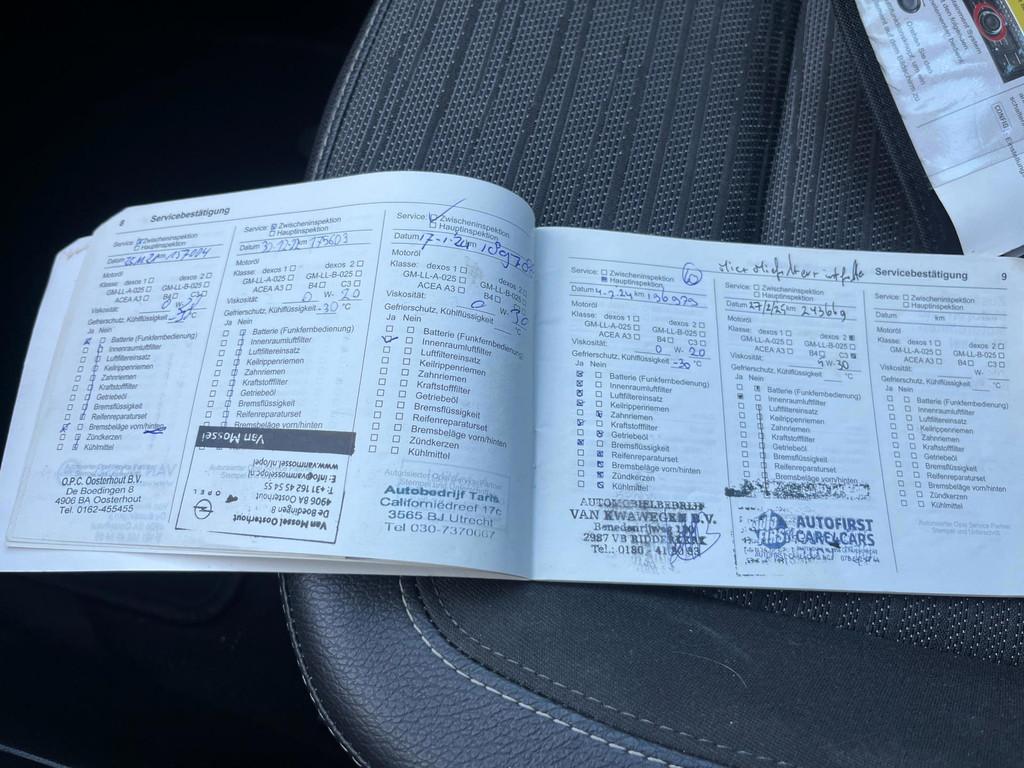 8 Servicebestätigung
Service: Zwischeninspektion
Hauptinspektion
Datum km 157004
Motoröl
Klasse: dexos 1 dexos 2
GM-LL-A-025 GM-LL-B-025
ACEA A3 B4 C3
Viskosität: W-
Gefrierschutz, Kühlflüssigkeit °C
Ja Nein
Batterie (Funkfernbedienung)
Innenraumluftfilter
Luftfiltereinsatz
Keilrippenriemen
Zahnriemen
Kraftstofffilter
Getriebeöl
Bremsflüssigkeit
Reifenreparaturset
Bremsbeläge vorn/hinten
Zündkerzen
Kühlmittel
O.P.C. Oosterhout B.V.
De Boedingen 8
4906 BA Oosterhout
Tel. 0162-455455
Service: Zwischeninspektion
Hauptinspektion
Datum km 175603
Motoröl
Klasse: dexos 1 dexos 2
GM-LL-A-025 GM-LL-B-025
ACEA A3 B4 C3
Viskosität: 0 W-20
Gefrierschutz, Kühlflüssigkeit -30 °C
Ja Nein
Batterie (Funkfernbedienung)
Innenraumluftfilter
Luftfiltereinsatz
Keilrippenriemen
Zahnriemen
Kraftstofffilter
Getriebeöl
Bremsflüssigkeit
Reifenreparaturset
Bremsbeläge vorn/hinten
Van Mossel
Van Mossel Oosterhout
De Boedingen 8
4906 BA Oosterhout
T: +31 162 45 54 55
www.vanmossel.nl/opel
OPEL
Service: Zwischeninspektion
Hauptinspektion
Datum 17-1-24 km
Motoröl
Klasse: dexos 1 dexos 2
GM-LL-A-025 GM-LL-B-025
ACEA A3 B4 C3
Viskosität: 0 W-20
Gefrierschutz, Kühlflüssigkeit °C
Ja Nein
Batterie (Funkfernbedienung)
Innenraumluftfilter
Luftfiltereinsatz
Keilrippenriemen
Zahnriemen
Kraftstofffilter
Getriebeöl
Bremsflüssigkeit
Reifenreparaturset
Bremsbeläge vorn/hinten
Zündkerzen
Kühlmittel
Autorisierter Opel Service Partner
Stempel und Unterschrift
Autobedrijf Taria
Californiëdreef 17c
3565 BJ Utrecht
Tel 030-7370667
Servicebestätigung 9
Service: Zwischeninspektion
Hauptinspektion
Datum 4-9-24 km 196939
Motoröl
Klasse: dexos 1 dexos 2
GM-LL-A-025 GM-LL-B-025
ACEA A3 B4 C3
Viskosität: 0 W-20
Gefrierschutz, Kühlflüssigkeit -30 °C
Ja Nein
Batterie (Funkfernbedienung)
Innenraumluftfilter
Luftfiltereinsatz
Keilrippenriemen
Zahnriemen
Kraftstofffilter
Getriebeöl
Bremsflüssigkeit
Reifenreparaturset
Bremsbeläge vorn/hinten
Zündkerzen
Kühlmittel
AUTOMOBIELBEDRIJF
VAN KWAWEGEN B.V.
2987 VB RIDDERKERK
Service: Zwischeninspektion
Hauptinspektion
Datum 27/2/25 km 243669
Motoröl
Klasse: dexos 1 dexos 2
GM-LL-A-025 GM-LL-B-025
ACEA A3 B4 C3
Viskosität: W-30
Gefrierschutz, Kühlflüssigkeit °C
Ja Nein
Batterie (Funkfernbedienung)
Innenraumluftfilter
Luftfiltereinsatz
Keilrippenriemen
Zahnriemen
Kraftstofffilter
Getriebeöl
Bremsflüssigkeit
Reifenreparaturset
Bremsbeläge vorn/hinten
AUTOFIRST
CARE4CARS
Service: Zwischeninspektion
Hauptinspektion
Datum km
Motoröl
Klasse: dexos 1 dexos 2
GM-LL-A-025 GM-LL-B-025
ACEA A3 B4 C3
Viskosität: W-
Gefrierschutz, Kühlflüssigkeit °C
Ja Nein
Batterie (Funkfernbedienung)
Innenraumluftfilter
Luftfiltereinsatz
Keilrippenriemen
Zahnriemen
Kraftstofffilter
Getriebeöl
Bremsflüssigkeit
Reifenreparaturset
Bremsbeläge vorn/hinten
Zündkerzen
Kühlmittel
Autorisierter Opel Service Partner
Stempel und Unterschrift
Drehen Sie den
CONFIG